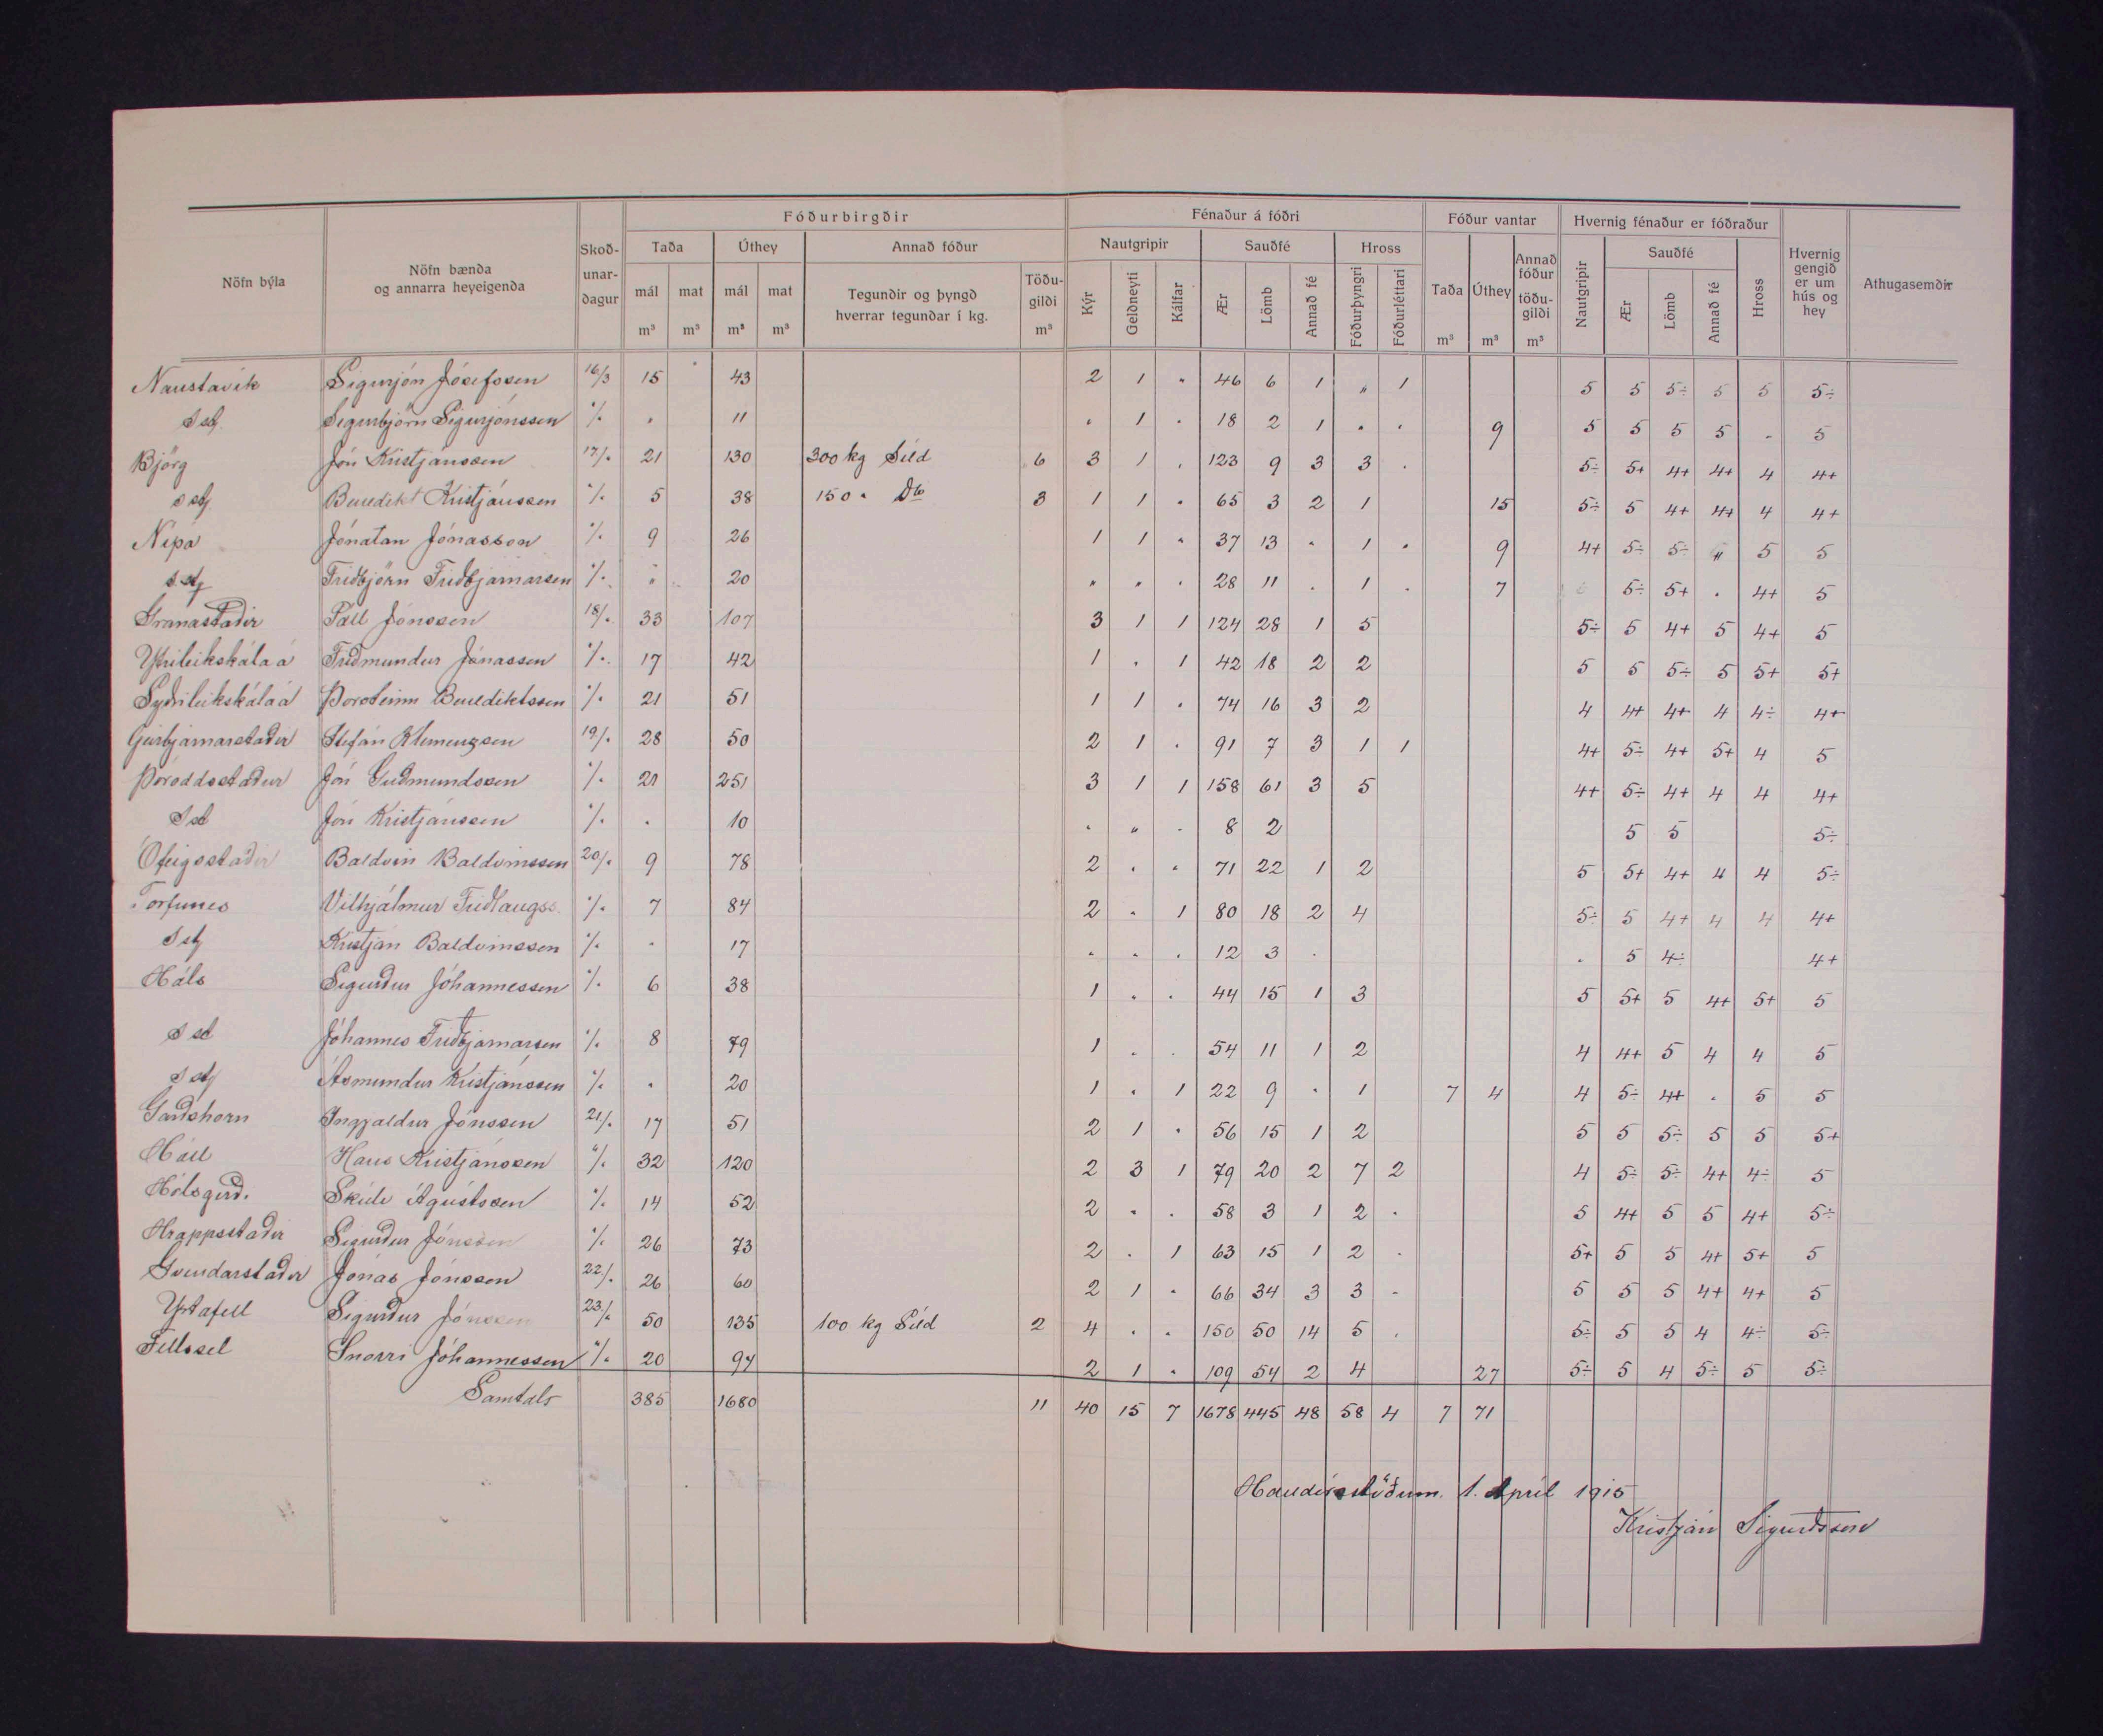 Fóðurbirgðir Fénaður á fóðri Fóður vantar Hvernig fénaður er fóðraður
Nöfn býla Nöfn bænda og annarra heyeigenda Skoðunardagur Taða Úthey Annað fóður Nautgripir Sauðfé Hross Taða Úthey Annað fóður töðugildi Nautgripir Sauðfé Hross Hvernig gengið er um hús og hey Athugasemdir
mál mat mál mat Tegundir og þyngd hverrar tegundar í kg. Töðugildi Kýr Geldneyti Kálfar Ær Lömb Annað fé Fóðurþyngri Fóðurléttari Ær Lömb Annað fé
m³ m³ m³ m³ m³ m³ m³ m³
Naustavík Sigurjón Jósefssen 16/3 15 43 2 1 " 46 6 1 " 1 5 5 5÷ 5 5 5÷
Sigurbjörn Sigurjónssen "/. . 11 . 1 . 18 2 1 . . 9 5 5 5 5 . 5
Björg Jón Kristjánssen 17/. 21 130 300 kg Síld 6 3 1 . 123 9 3 3 . 5÷ 5+ 4+ 4+ 4 4+
Benedikt Kristjánssen "/. 5 38 150 " Do 3 1 1 . 65 3 2 1 15 5÷ 5 4+ 4+ 4 4+
Nípá Jónatan Jónasson "/. 9 26 1 1 " 37 13 " 1 . 9 4+ 5÷ 5÷ " 5 5
Friðbjörn Friðbjarnarsen "/. " 20 " " . 28 11 . 1 . 7 5÷ 5+ . 4+ 5
Granastaðir Páll Jónssen 18/. 33 107 3 1 1 124 28 1 5 5÷ 5 4+ 5 4+ 5
Ytrileikskálaá Friðmundur Jónassen "/. 17 42 1 . 1 42 18 2 2 5 5 5÷ 5 5+ 5+
Syðrileikskálaá Þorsteinn Benediktssen "/. 21 51 1 1 . 74 16 3 2 4 4+ 4+ 4 4÷ 4+
Geirbjarnarstaðir Stefán Klemenzsen 19/. 28 50 2 1 . 91 7 3 1 1 4+ 5÷ 4+ 5+ 4 5
Þóroddsstaður Jón Guðmundssen "/. 21 251 3 1 1 158 61 3 5 4+ 5÷ 4+ 4 4 4+
Jón Kristjánssen "/. . 10 . " . 8 2 5 5 5÷
Ófeigsstaðir Baldvin Baldvinssen 20/. 9 78 2 . " 71 22 1 2 5 5+ 4+ 4 4 5÷
Torfunes Vilhjálmur Friðlaugss. "/. 7 84 2 . 1 80 18 2 4 5÷ 5 4+ 4 4 4+
Kristján Baldvinssen "/. " 17 . . . 12 3 . . 5 4÷ 4+
Háls Sigurður Jóhannessen "/. 6 38 1 . . 44 15 1 3 5 5+ 5 4+ 5+ 5
Jóhannes Friðbjarnarsen "/. 8 79 1 . . 54 11 1 2 4 4+ 5 4 4 5
Ásmundur Kristjánssen "/. . 20 1 . 1 22 9 . 1 7 4 4 5÷ 4+ . 5 5
Garðshorn Ingjaldur Jónssen 21/. 17 51 2 1 . 56 15 1 2 5 5 5÷ 5 5 5+
Hóll Hans Kristjánssen "/. 32 120 2 3 1 79 20 2 7 2 4 5÷ 5÷ 4+ 4÷ 5
Hólsgerð. Skúli Ágústssen "/. 14 52 2 . . 58 3 1 2 . 5 4+ 5 5 4+ 5÷
Hrappsstaðir Sigurður Jónssen "/. 26 73 2 . 1 63 15 1 2 . 5+ 5 5 4+ 5+ 5
Gvendarstaðir Jónas Jónssen 22/. 26 60 2 1 . 66 34 3 3 - 5 5 5 4+ 4+ 5
Ystafell Sigurður Jónssen 23/. 50 135 100 kg Síld 2 4 . . 150 50 14 5 . 5÷ 5 5 4 4÷ 5÷
Fellssel Snorri Jóhannessen "/. 20 94 2 1 " 109 54 2 4 27 5÷ 5 4 5÷ 5 5÷
Samtals 385 1680 11 40 15 7 1678 445 48 58 4 7 71
1. Apríl 1915
Kristján Sigurðsson